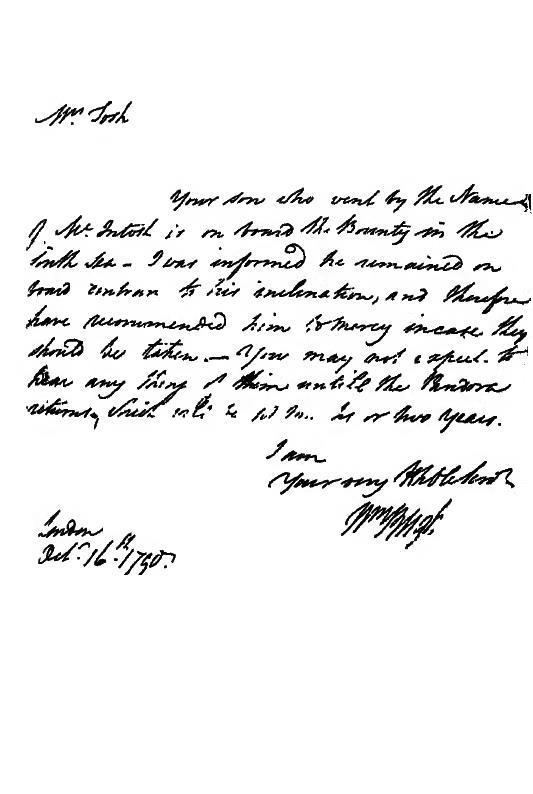 Mrs Tosh
Your son who went by the Name
of Mc Intosh is on board the Bounty in the
South Sea - I was informed he remained on
board contrary to his inclination, and therefore
have recommended him to mercy in case they
should be taken. - You may not expect to
hear any thing of them untill the Pandora
returns, which will be two years.
I am
Your very
Wm Bligh
London
Octr. 16th. 1790.